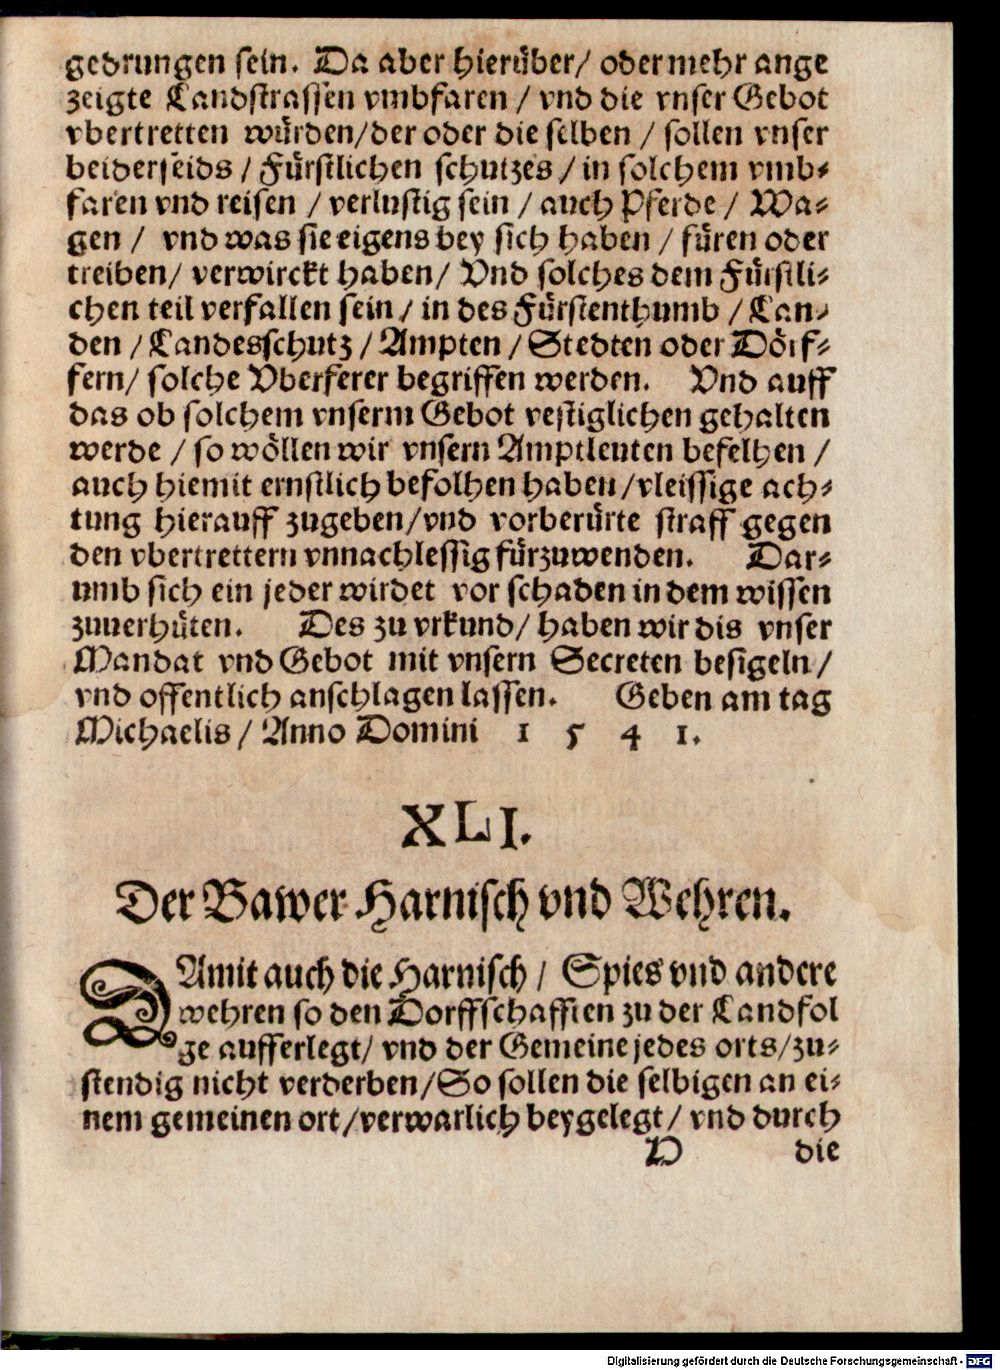 gedrungen sein. Da aber hierüber/ oder mehr ange
zeigte Landstrassen vmbfaren / vnd die vnser Gebot
vbertretten würden/der oder die selben / sollen vnser
beiderseids / Fürstlichen schutzes / in solchem vmb-
faren vnd reisen / verlustig sein / auch Pferde / Wa-
gen / vnd was sie eigens bey sich haben / füren oder
treiben/ verwirckt haben/ Vnd solches dem Fürstli-
chen teil verfallen sein / in des Fürstenthumb / Lan-
den / Landesschutz / Ampten / Stedten oder Dörf-
fern/ solche Vberferer begriffen werden. Vnd auff
das ob solchem vnserm Gebot vestiglichen gehalten
werde / so wöllen wir vnsern Amptleuten befelhen /
auch hiemit ernstlich befolhen haben/vleissige ach-
tung hierauff zugeben/vnd vorberürte straff gegen
den vbertrettern vnnachlessig fürzuwenden. Dar-
umb sich ein jeder wirdet vor schaden in dem wissen
zuuerhüten. Des zu vrkund/ haben wir dis vnser
Mandat vnd Gebot mit vnsern Secreten besigeln/
vnd offentlich anschlagen lassen. Geben am tag
Michaelis/ Anno Domini 1 5 4 1.
XLI.
Der Bawer Harnisch vnd Wehren.
DAmit auch die Harnisch / Spies vnd andere
wehren so den Dorffschafften zu der Landfol
ge aufferlegt/ vnd der Gemeine jedes orts/zu-
stendig nicht verderben/So sollen die selbigen an ei-
nem gemeinen ort/verwarlich beygelegt/ vnd durch
V die
Digitalisierung gefördert durch die Deutsche Forschungsgemeinschaft - DFG